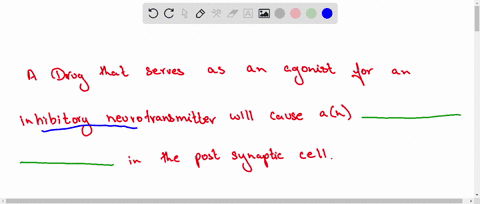 A Drug that serves as an agonist for an
inhibitory neurotransmitter will cause a(n)
in the post synaptic cell.